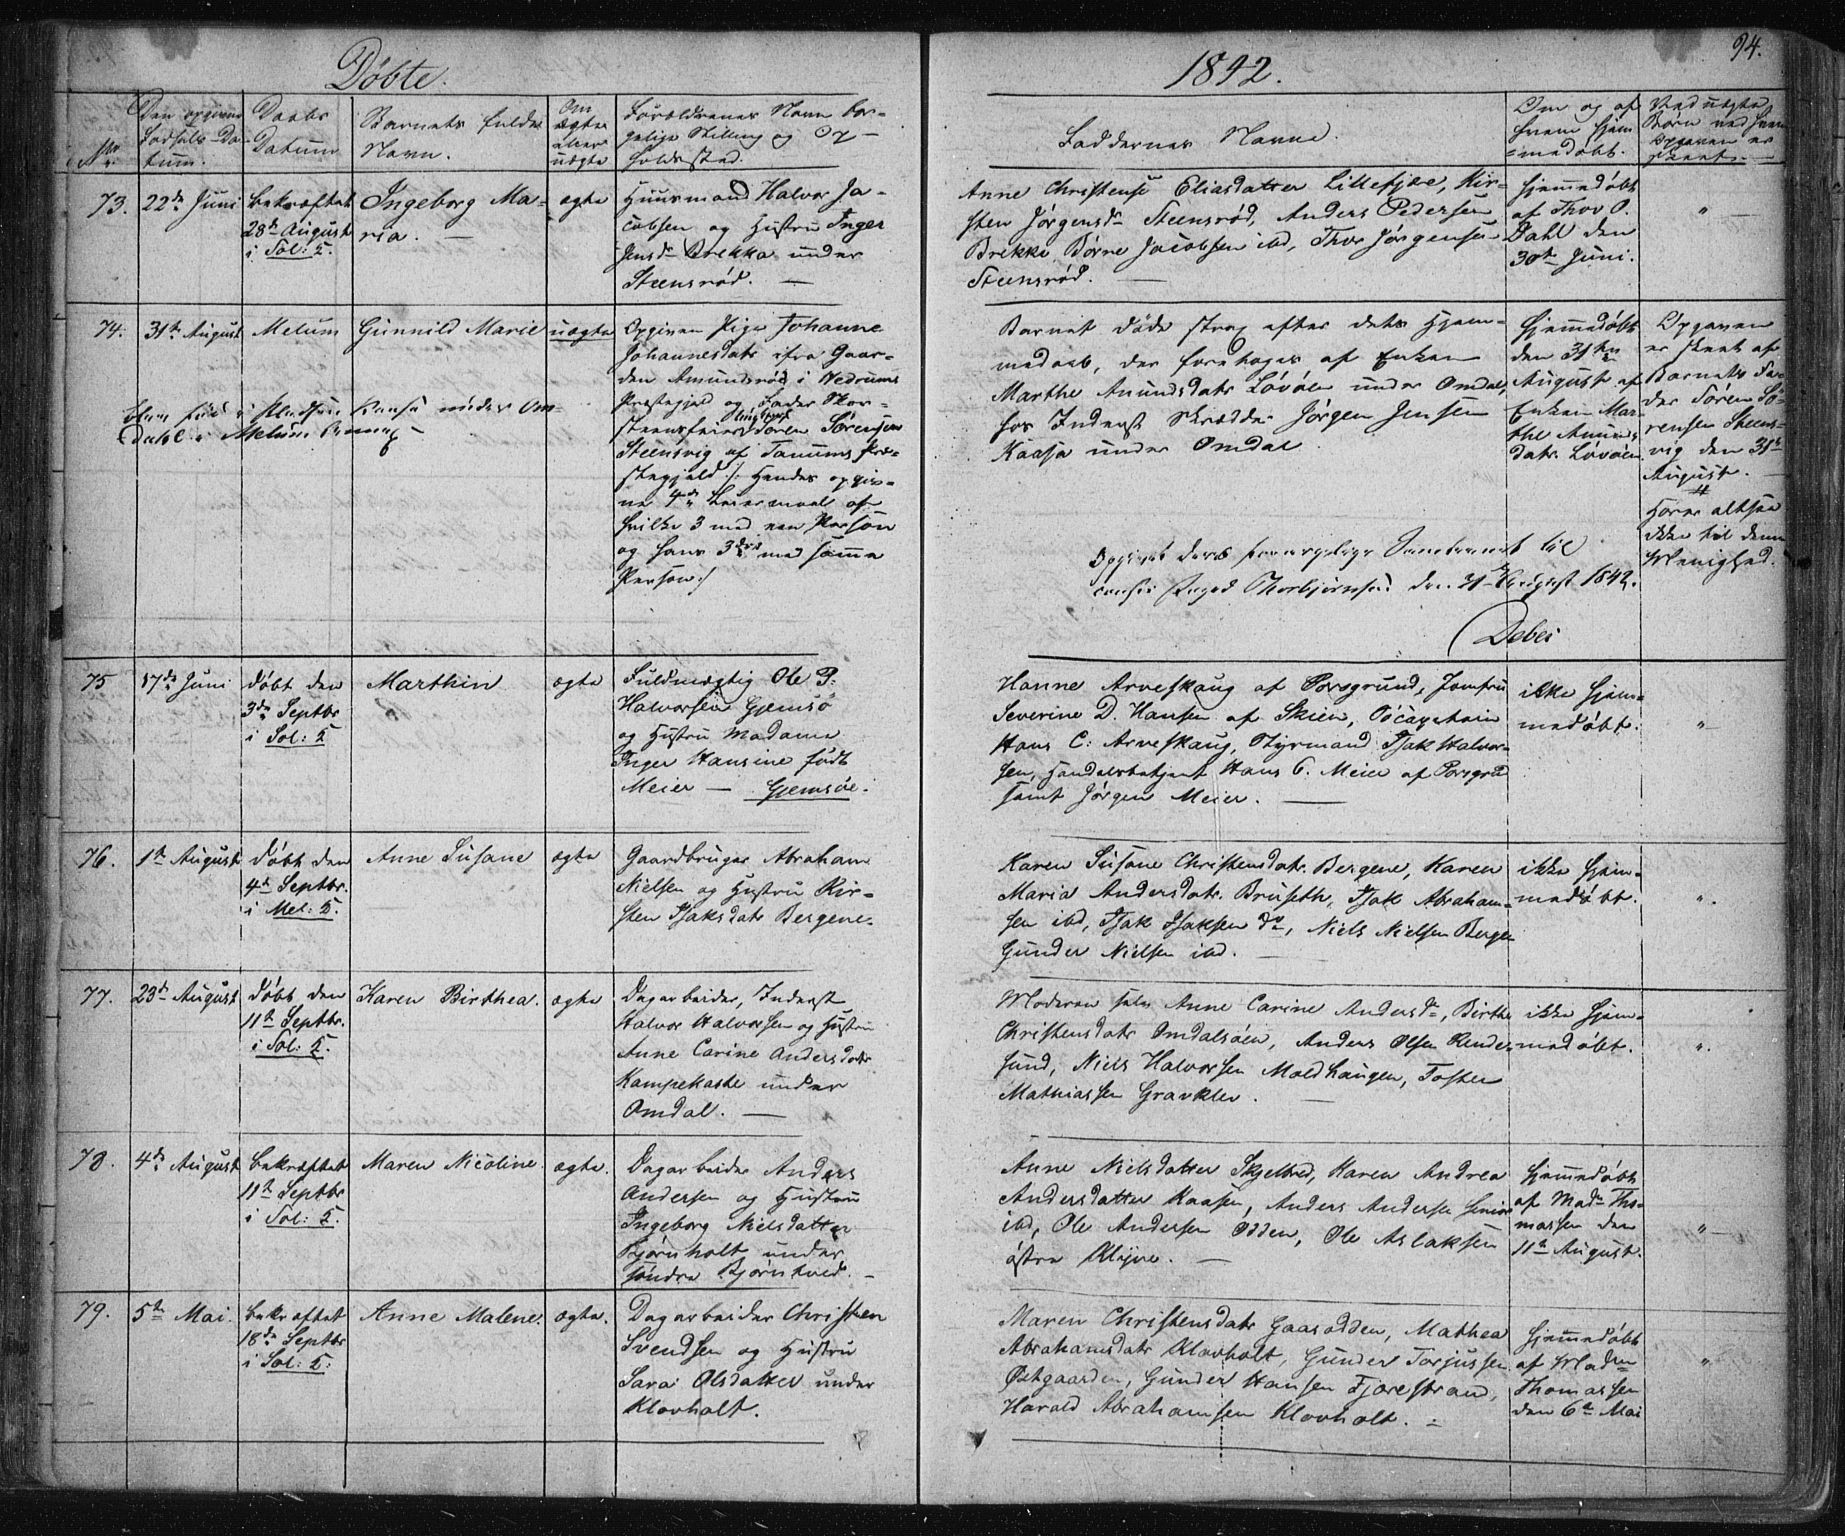 Døbte.
1842.
94.
No
Den opgivne
Fødsels-Da-
tum.
Daabs
Datum
Barnets fulde
Navn.
Om
ægte
eller
uægte
Forældrenes Navn bor-
gelige Stilling og Op-
holdssted.
Faddernes Navne.
Om og af
hvem hjem-
medøbt.
Ved uægte
Børn ved hvem
Opgaven er
skeet.
73.
22de Juni
bekræftet
28de August
i Sol: K.
Ingeborg Ma-
ria.
ægte
Huusmand Halvor Ja-
cobsen og Hustru Inger
Jensdr Brekka under
Steensrød.
Anne Christense Eliasdatter Lillefjære, Kir-
sten Jørgensdr Steensrød, Anders Pedersen
Brekka, Børne Jacobsen ibd, Thor Jørgensen
Steensrød.
Hjemmedøbt
af Thor O.
Dahl den
30te Juni.
"
74.
31te August
Melum
Gunnild Marie
uægte
Opgiven Pige Johanne
Johannesdatr ifra Gaar-
den Amundsrød i Hedrums
Præstegjeld og Fader Skor-
steensfeier Søren Sørensen
Steensvig af Tanums Præ-
stegjeld /: Hendes opgiv-
ne 4de Leiermaal af
hvilke 3 med een Person
og hans 3die med samme
Person :/
Blev født i Pladsen Kaasa under Om-
dahl i Melum Annex
Barnet døde strax efter dets Hjem-
medaab, der foretoges af Enken
Marthe Amundsdatr Løvøen under Omdal,
hos Inderst Skrædder Jørgen Jensen
Kaasa under Omdal.
Opgivet deres
den 31te August 1842.
Debes
Hjemmedøbt
den 31te
August af
Enken Mar-
the Amunds-
datr Løvøen
Opgaven
er skeet af
Barnets Fa-
der Søren Sø-
rensen Steens-
vig den 31te
August.
Hører altsaa
ikke til denne
Menighed.
75
17de Juni
døbt den
3die Septbr
i Sol: K
Marthin
ægte
Fuldmægtig Ole P.
Halvorsen Gjemsö
og Hustru Madame
Inger Hansine født
Meier — Gjemsøe.
Hanne Arveskaug af Porsgrund, Jomfru
Severine D. Hansen af Skien, Søcapitain
Hans C: Arveskaug, Styrmand Isak Halvor-
sen, Handelsbetjent Hans C. Meier af Porsgrd
samt Jørgen Meier.
ikke hjem-
medøbt.
"
76.
1te August
døbt den
4de Septbr.
i Mel: K.
Anne Susane
ægte
Gaardbruger Abraham
Nielsen og Hustru Kir-
sten Isaksdatr Bergene.
Karen Susane Christensdatr. Bergene, Karen
Maria Andersdatr. Bruseth, Isak Abraham-
sen ibd, Isak Isaksen do, Niels Nielsen Bergen
Gunder Nielsen ibd.
ikke hjem-
medøbt.
".
77.
23de August
døbt den
11te Septbr.
i Sol: K.
Karen Birthea.
ægte
Dagarbeider, Inderst
Halvor Halvorsen og Hustru
Anne Carine Andersdatr
Kampekaste under
Omdal.
Moderen selv Anne Carine Andersdr, Birthe
Christensdatr Omdalsøen, Anders Olsen Rende-
sund, Niels Halvorsen Moldhaugen, Tosten
Mathiassen Gravklev.
ikke hjem-
medøbt.
".
78.
4de August
bekræftet
11te Septbr
i Sol: K.
Maren Nicoline.
ægte.
Dagarbeider Anders
Andersen og Hustru
Ingeborg Nielsdatter
Bjørnholt under
søndre Bjørntved.
Anne Nielsdatter Skjelbred, Karen Andrea
Andersdatter Kaasen, Anders Andersen senior
ibd, Ole Andersen Odden, Ole Aslaksen
østre Klyve.
Hjemmedøbt
af Made Tho-
massen den
11te August.
"
79.
5te Mai.
bekræftet
18de Septbr
i Sol: K:
Anne Malene.
ægte.
Dagarbeider Christen
Svendsen og Hustru
Sara Olsdatter under
Klovholt.
Maren Christensdatr Gaasodden, Mathea
Abrahamsdatr Klovholt, Gunder Torjussen
Østgaarden, Gunder Hansen Fjærestrand,
Harald Abrahamsen Klovholt.
Hjemmedøbt
af Madm
Thomassen
den 6te Mai
"